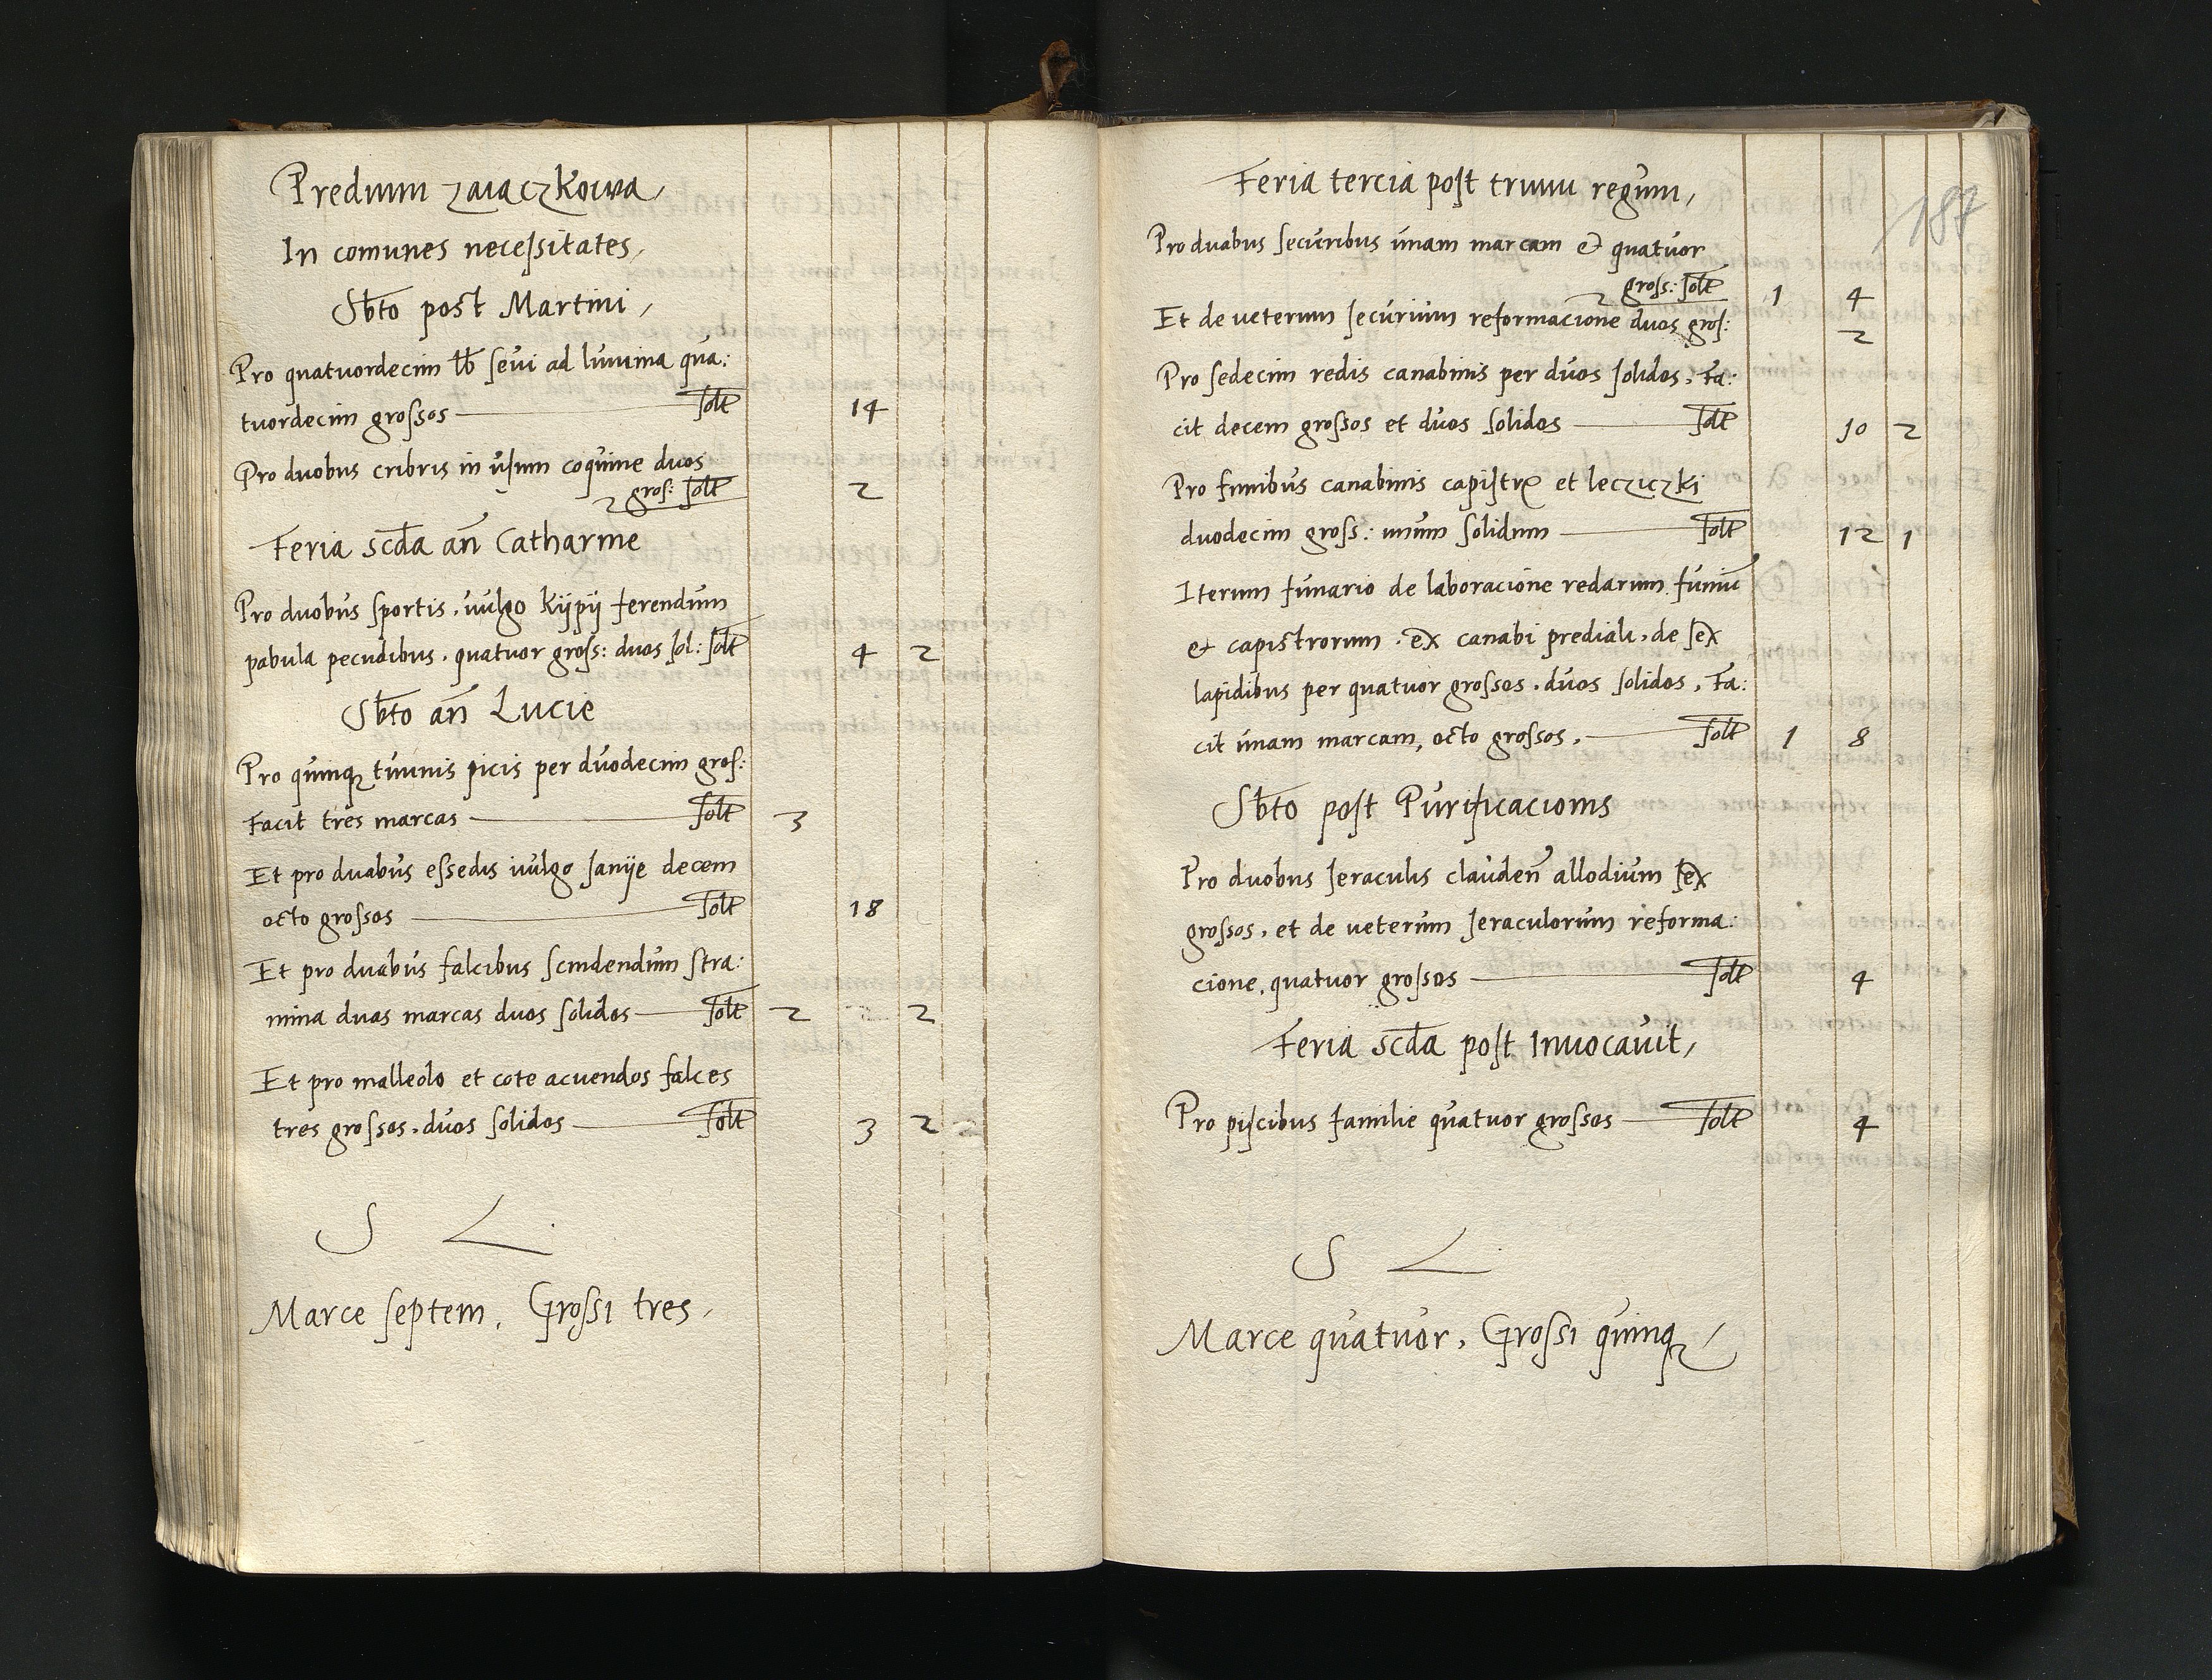 Predium Zaiaczkowa
In comunes necessitates,
Sbto post Martini,
Pro quatuordecim lb sevi ad lumina qua:
tuordecim grossos — solt 14
Pro duobus cribris in usum coquine duos
gros: solt 2
Feria scda an Catharine
Pro duobus sportis, vulgo kijpij ferendum
pabula pecudibus, quatuor gross: duos sol: solt 4 2
Sbto an Lucie
Pro quinq tunnis picis per duodecim gros:
Facit tres marcas — solt 3
Et pro duabus essedis vulgo sanije decem
octo grossos — solt 18
Et pro duabus falcibus scindendum stra:
mina duas marcas duos solidos — solt 2 2
Et pro malleolo et cote acuendos falces
tres grossos, duos solidos — solt 3 2
S L
Marce septem, Grossi tres,
187
Feria tercia post trium regum,
Pro duabus securibus unam marcam & quatuor
gross: solt 1 4
Et de veterum securium reformacione duos gros: 2
Pro sedecim redis canabinis per duos solidos, Fa:
cit decem grossos et duos solidos — solt 10 2
Pro funibus canabinis capistr et lecziczki
duodecim gross: unum solidum — solt 12 1
Iterum funario de laboracione redarum funiu
& capistrorum, ex canabi prediali, de sex
lapidibus per quatuor grossos, duos solidos, Fa:
cit unam marcam, octo grossos, — solt 1 8
Sbto post Purificacionis
Pro duobus seraculis clauden allodium sex
grossos, et de veterum seraculorum reforma:
cione, quatuor grossos — solt 4
Feria scda post Invocavit,
Pro piscibus familie quatuor grossos — solt 4
S L
Marce quatuor, Grossi quinq